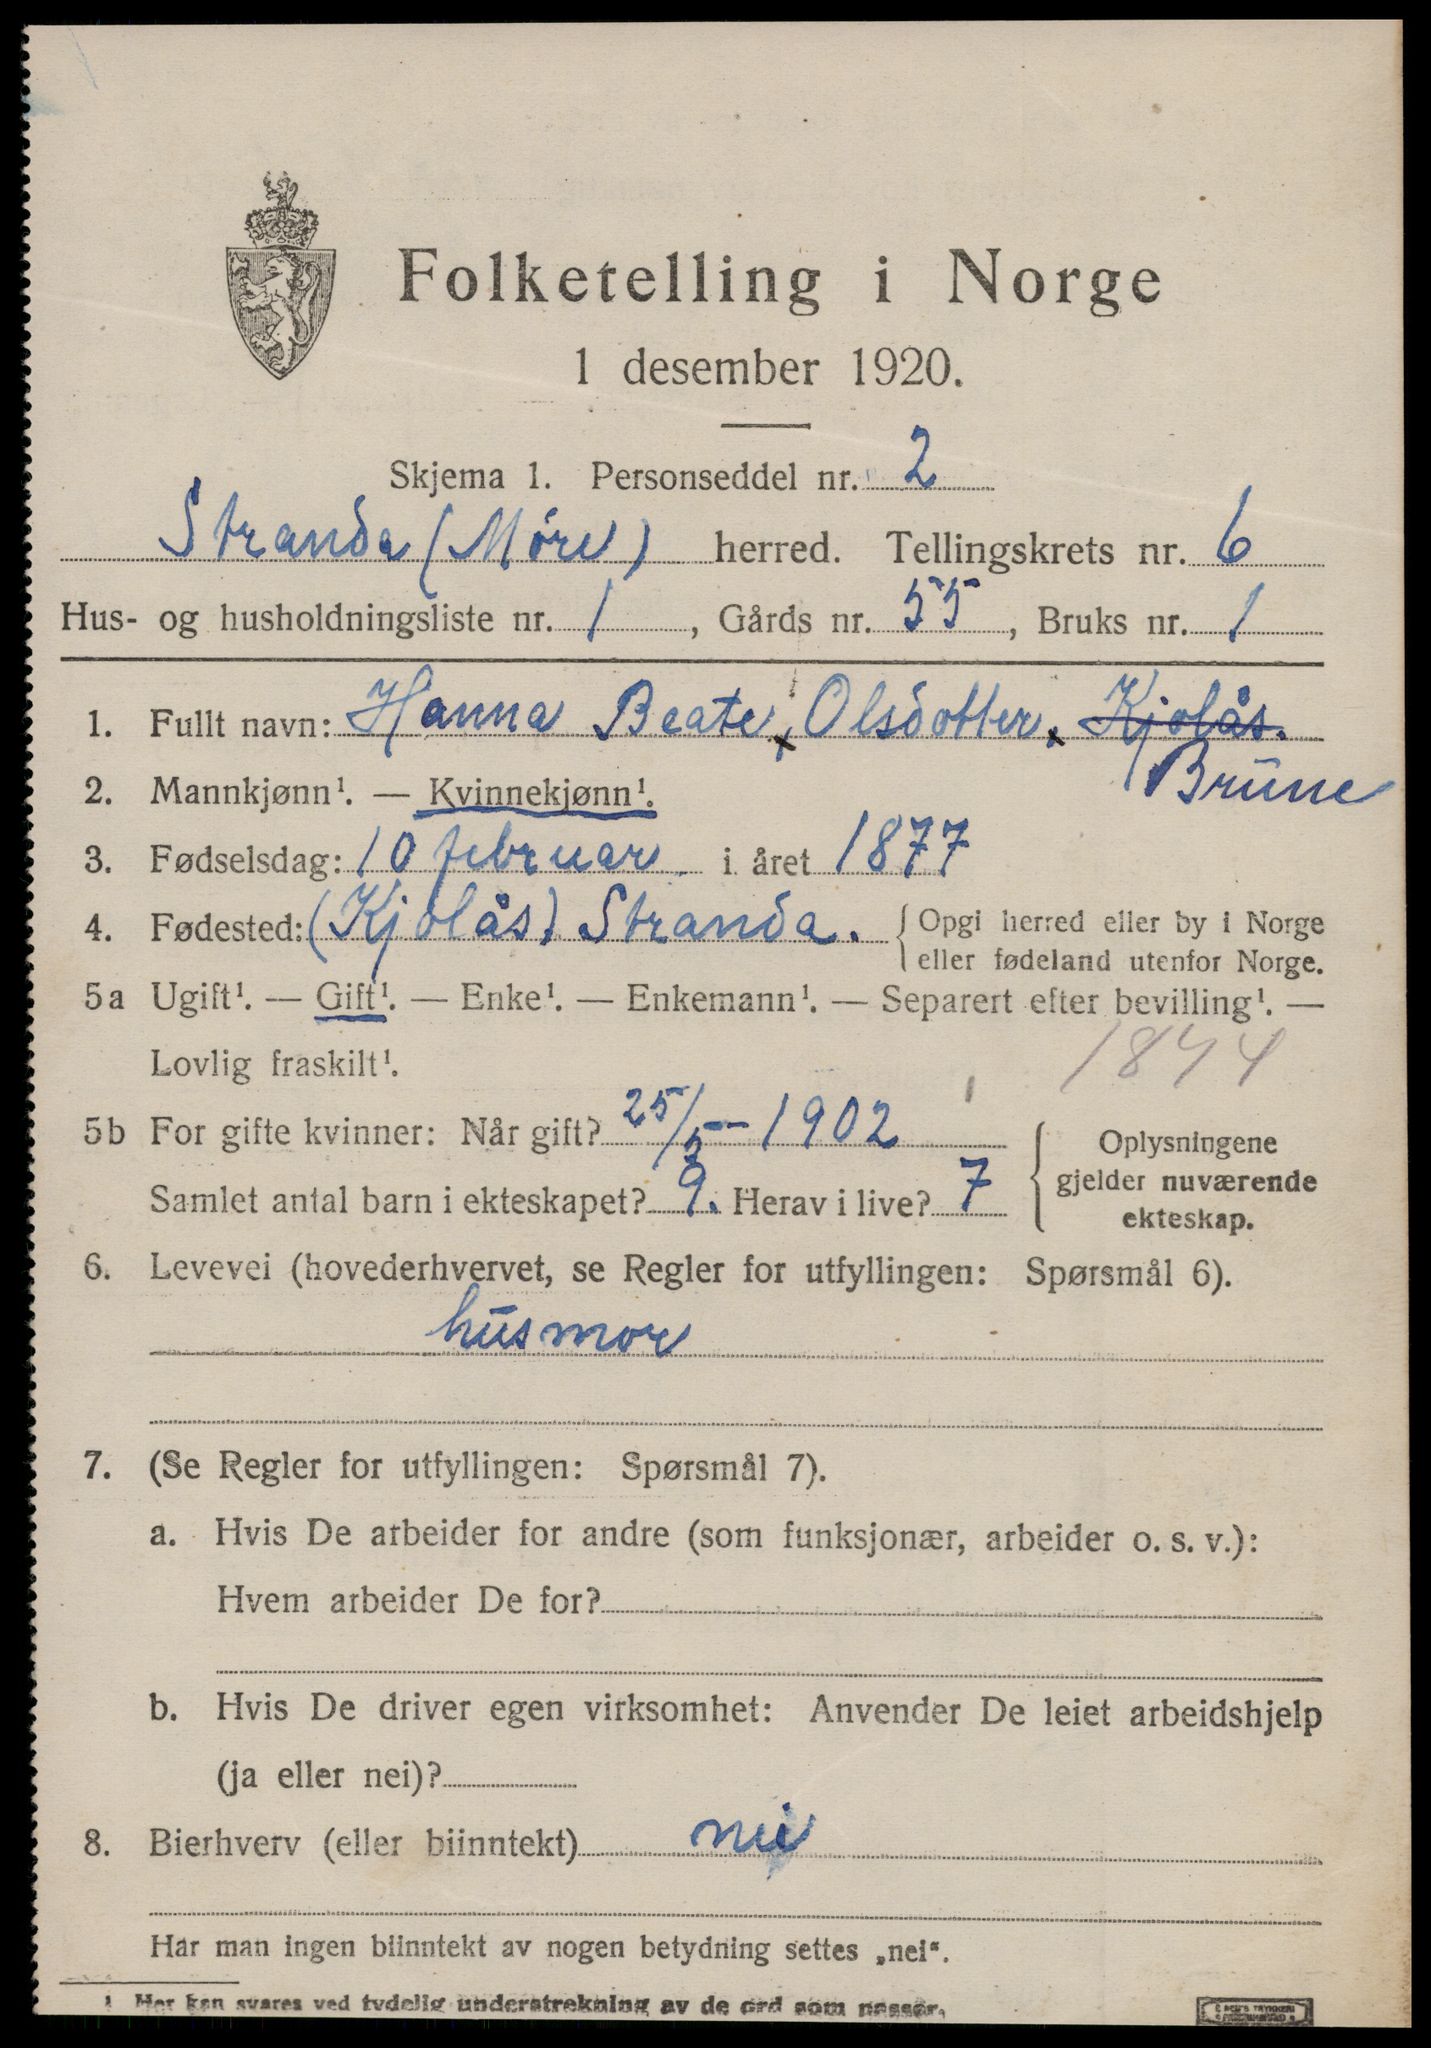 Folketelling i Norge
1 desember 1920.
Skjema 1. Personseddel nr. 2
Stranda (Møre) herred. Tellingskrets nr. 6
Hus- og husholdningsliste nr. 1, Gårds nr. 55, Bruks nr. 1
1. Fullt navn: Hanna Beate, Olsdotter, Kjolås.
Brune
2. Mannkjønn¹. — Kvinnekjønn¹.
3. Fødselsdag: 10 februar i året 1877
4. Fødested: (Kjolås) Stranda. Opgi herred eller by i Norge
eller fødeland utenfor Norge.
5a Ugift¹. — Gift¹. — Enke¹. — Enkemann¹. — Separert efter bevilling¹. —
Lovlig fraskilt¹.
1844
5b For gifte kvinner: Når gift? 25/5 – 1902
Samlet antal barn i ekteskapet? 9. Herav i live? 7
Oplysningene
gjelder nuværende
ekteskap.
6. Levevei (hovederhvervet, se Regler for utfyllingen: Spørsmål 6).
husmor
7. (Se Regler for utfyllingen: Spørsmål 7).
a. Hvis De arbeider for andre (som funksjonær, arbeider o. s. v.):
Hvem arbeider De for?
b. Hvis De driver egen virksomhet: Anvender De leiet arbeidshjelp
(ja eller nei)?
8. Bierhverv (eller biinntekt) nei
Har man ingen biinntekt av nogen betydning settes „nei“.
¹ Her kan svares ved tydelig understrekning av de ord som passer.